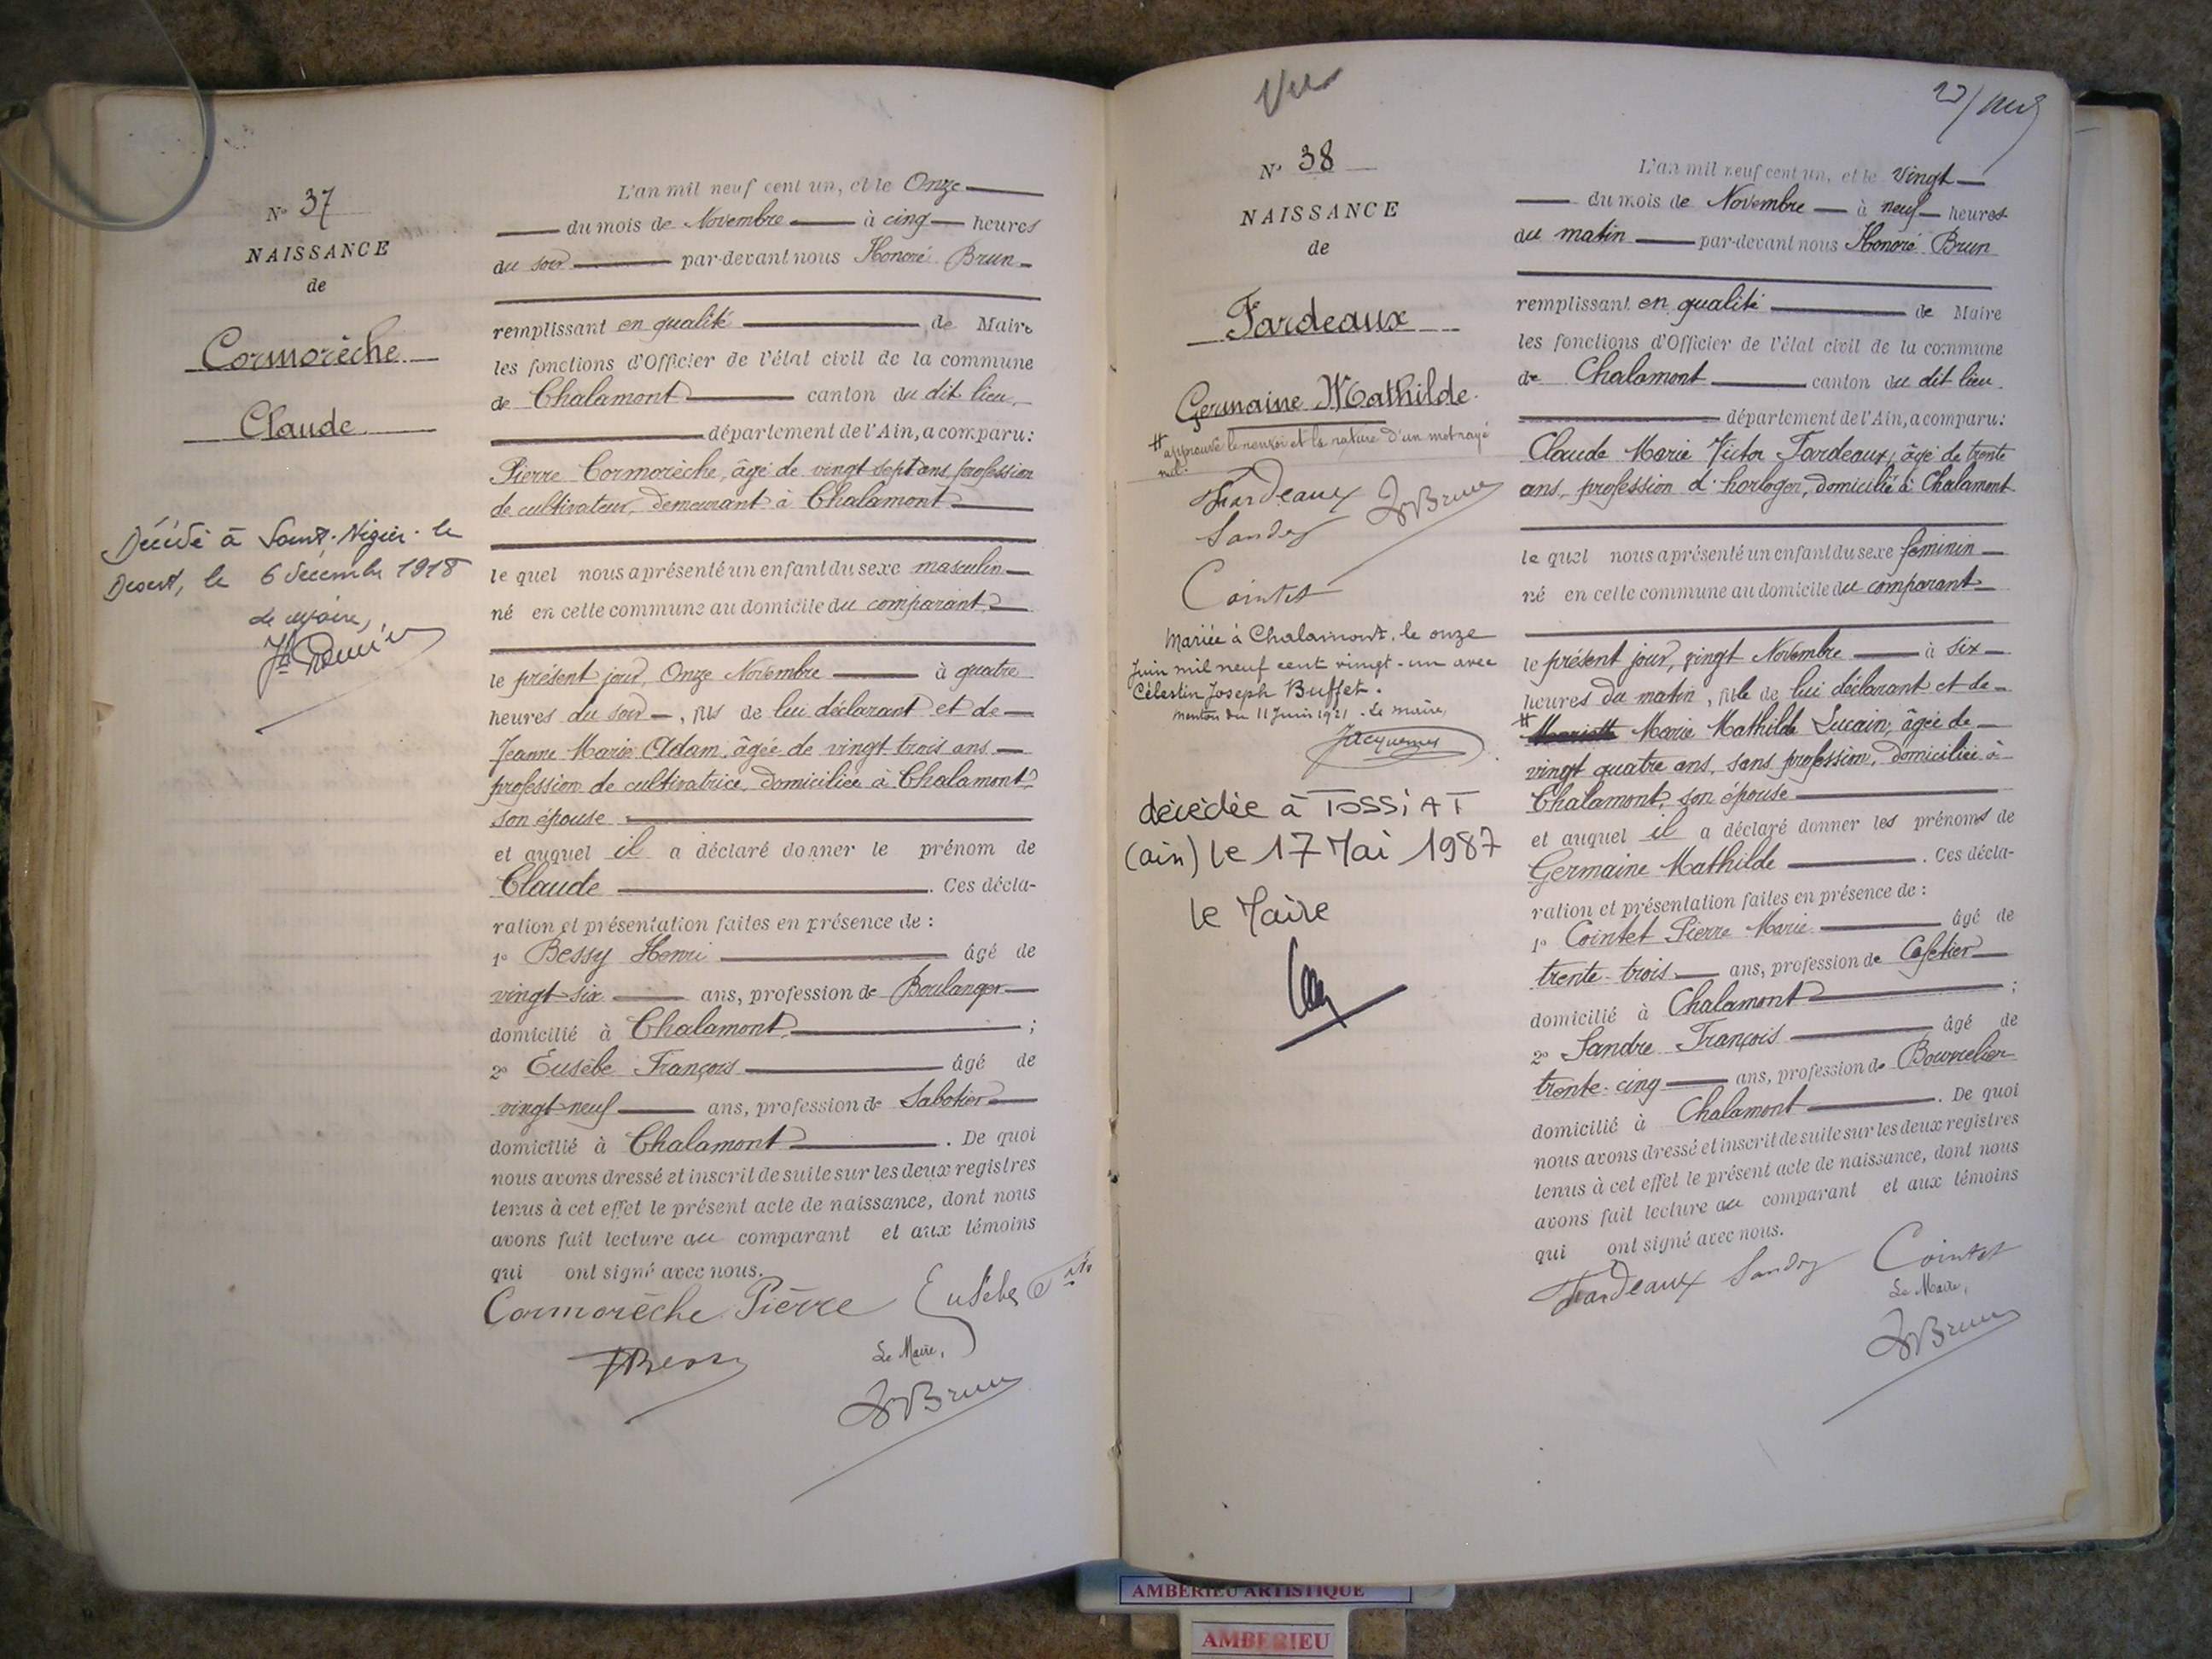 N° 37
NAISSANCE
de
Cormorèche
Claude
Décédé à Saint-Nizier-le
Désert, le 6 décembre 1918
Le Maire,
L'an mil neuf cent un, et le Onze
du mois de Novembre à cinq heures
du soir par-devant nous Honoré Brun
remplissant en qualité de Maire
les fonctions d'Officier de l'état civil de la commune
de Chalamont canton du dit lieu
département de l'Ain, a comparu:
Pierre Cormorèche, âgé de vingt sept ans, profession
de cultivateur, demeurant à Chalamont
le quel nous a présenté un enfant du sexe masculin
né en cette commune au domicile du comparant
le présent jour, Onze Novembre à quatre
heures du soir, fils de lui déclarant et de
Jeanne Marie Adam, âgée de vingt trois ans
profession de cultivatrice, domiciliée à Chalamont
son épouse
et auquel il a déclaré donner le prénom de
Claude. Ces décla-
ration et présentation faites en présence de :
1° Bessy Henri âgé de
vingt six ans, profession de Boulanger
domicilié à Chalamont ;
2° Eusèbe François âgé de
vingt neuf ans, profession de Sabotier
domicilié à Chalamont. De quoi
nous avons dressé et inscrit de suite sur les deux registres
tenus à cet effet le présent acte de naissance, dont nous
avons fait lecture au comparant et aux témoins
qui ont signé avec nous.
Cormorèche Pierre Eusèbe
Le Maire,
HBrun
Vu
N° 38
NAISSANCE
de
Fardeaux
Germaine Mathilde
# approuvé le renvoi et la rature d'un mot rayé
nul.
Fardeaux HBrun
Sandre
Cointet
Mariée à Chalamont, le onze
Juin mil neuf cent vingt-un avec
Célestin Joseph Buffet.
Mention du 11 Juin 1921. Le Maire,
décédée à TOSSIAT
(ain) le 17 Mai 1987
le Maire
L'an mil neuf cent un, et le vingt
du mois de Novembre à neuf heures
du matin par-devant nous Honoré Brun
remplissant en qualité de Maire
les fonctions d'Officier de l'état civil de la commune
de Chalamont canton du dit lieu
département de l'Ain, a comparu:
Claude Marie Victor Fardeaux, âgé de trente
ans, profession d'horloger, domicilié à Chalamont
le quel nous a présenté un enfant du sexe féminin
né en cette commune au domicile du comparant
le présent jour, vingt Novembre à six
heures du matin, fille de lui déclarant et de
# Marie Mathilde Lucain, âgée de
vingt quatre ans, sans profession, domiciliée à
Chalamont, son épouse
et auquel il a déclaré donner les prénoms de
Germaine Mathilde. Ces décla-
ration et présentation faites en présence de :
1° Cointet Pierre Marie âgé de
trente-trois ans, profession de Cafetier
domicilié à Chalamont ;
2° Sandre François âgé de
trente-cinq ans, profession de Bourrelier
domicilié à Chalamont. De quoi
nous avons dressé et inscrit de suite sur les deux registres
tenus à cet effet le présent acte de naissance, dont nous
avons fait lecture au comparant et aux témoins
qui ont signé avec nous.
Fardeaux Sandre Cointet
Le Maire,
HBrun
AMBERIEU ARTISTIQUE
AMBERIEU